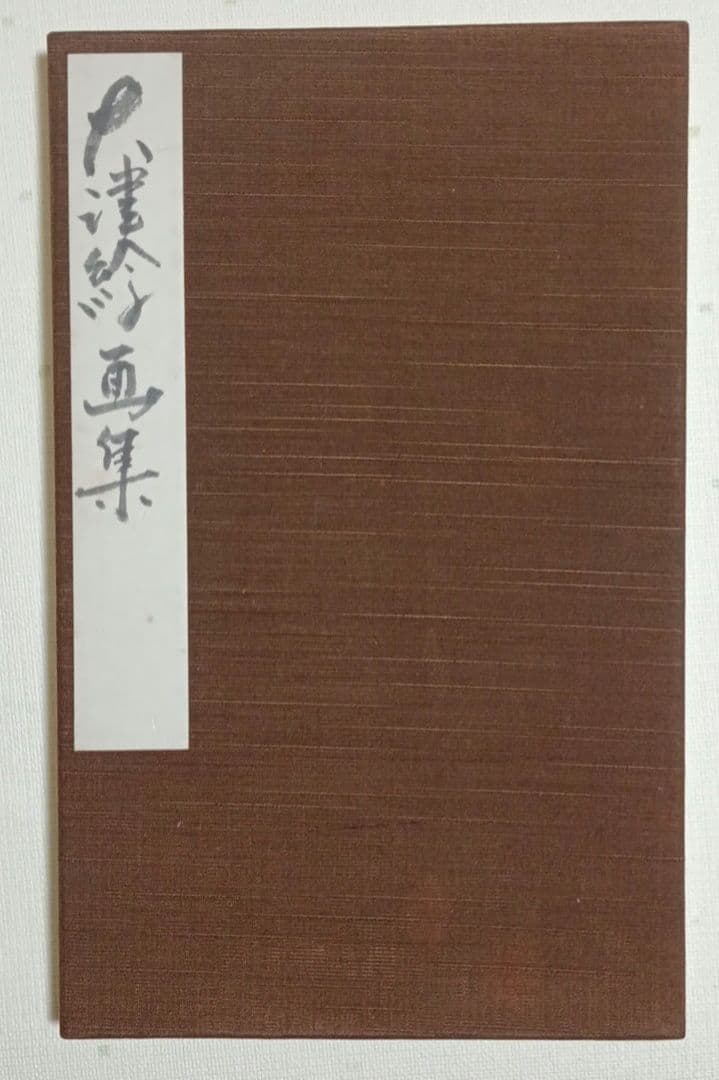 大津絵画集